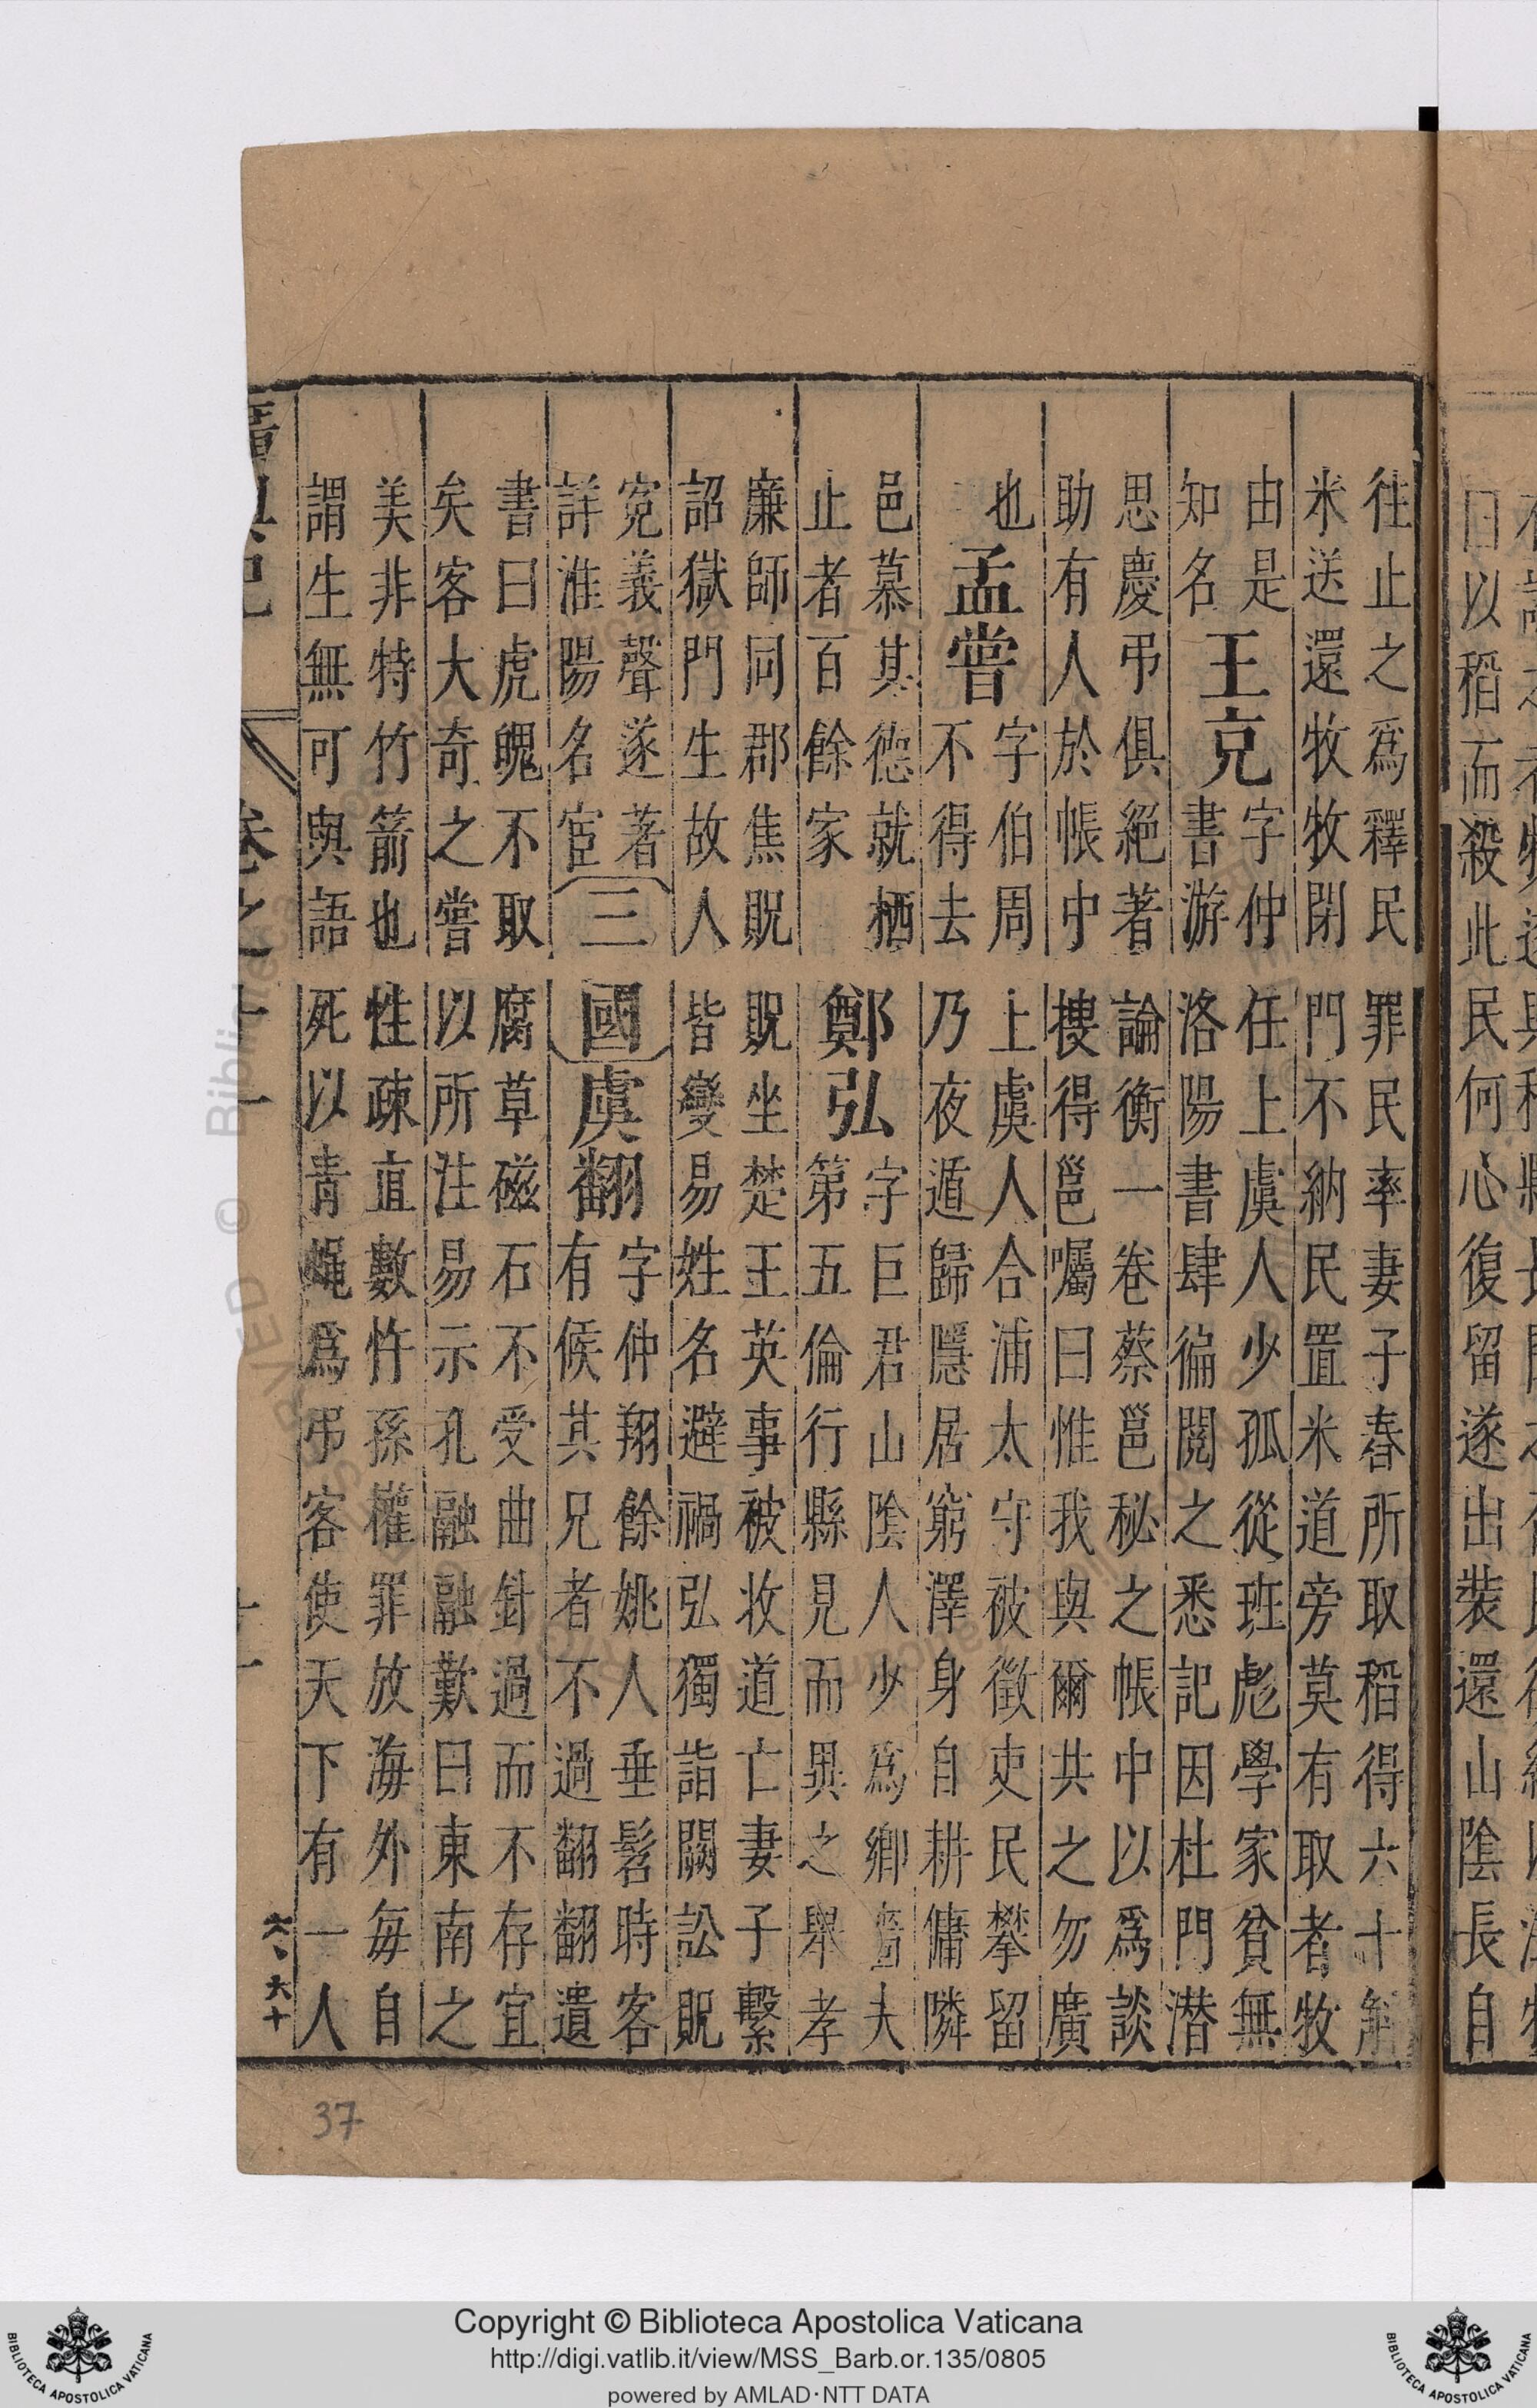 日以稻而殺此民何心復留遂出裝還山陰長自
往止之爲釋民罪民率妻子舂所取稻得六十斛
米送還牧牧閉門不納民置米道旁莫有取者牧
由是
知名
王充
字仲任上虞人少孤從班彪學家貧無
書游洛陽書肆徧閱之悉記因杜門潜
思慶弔俱絕著論衡一卷蔡邕秘之帳中以爲談
助有人於帳中搜得邕囑曰惟我與爾共之勿廣
也
孟嘗
字伯周上虞人合浦太守被徵吏民攀留
不得去乃夜遁歸隱居窮澤身自耕傭隣
邑慕其德就栖
止者百餘家
鄭弘
字巨君山陰人少爲鄉嗇夫
第五倫行縣見而異之舉孝
廉師同郡焦貺貺坐楚王英事被收道亡妻子繫
詔獄門生故人皆變易姓名避禍弘獨詣闕訟貺
寃義聲遂著
詳淮陽名宦
三國
虞翻
字仲翔餘姚人垂髫時客
有候其兄者不過翻翻遺
書曰虎魄不取腐草磁石不受曲針過而不存宜
矣客大奇之嘗以所注易示孔融融歎曰東南之
美非特竹箭也性疎直數忤孫權罪放海外每自
謂生無可與語死以青蠅爲弔客使天下有一人
卷之十一
六、六十
37
Copyright © Biblioteca Apostolica Vaticana
http://digi.vatlib.it/view/MSS_Barb.or.135/0805
powered by AMLAD·NTT DATA
BIBLIOTECA APOSTOLICA VATICANA
BIBLIOTECA APOSTOLICA VATICANA